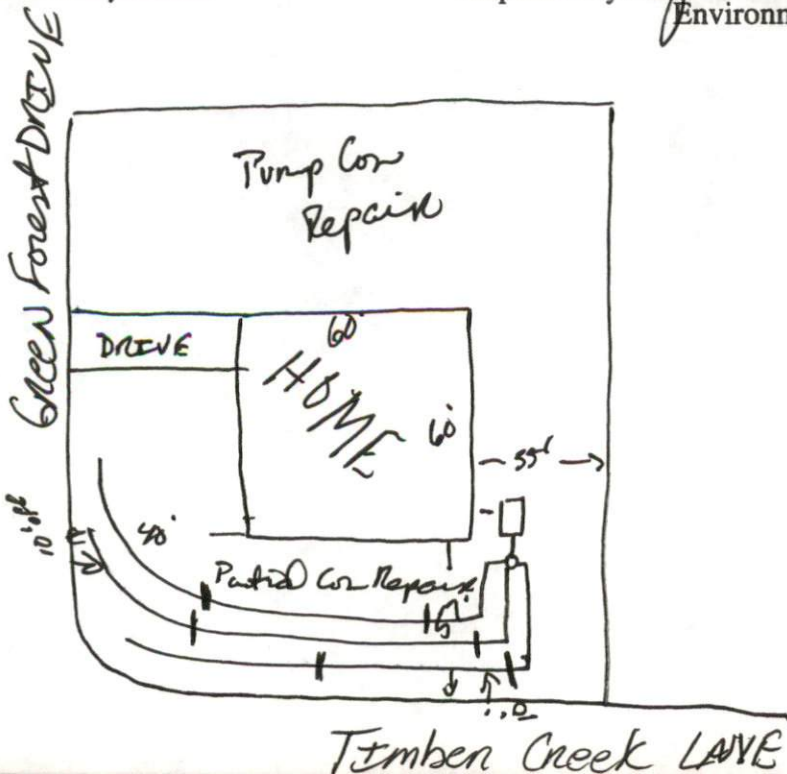 Environn
GREEN Forest DRIVE
Pump Con
Repair
DRIVE
60'
HOME
60'
55'
40'
10'
Partial Con Repair
5'
10
TImber Creek LANE